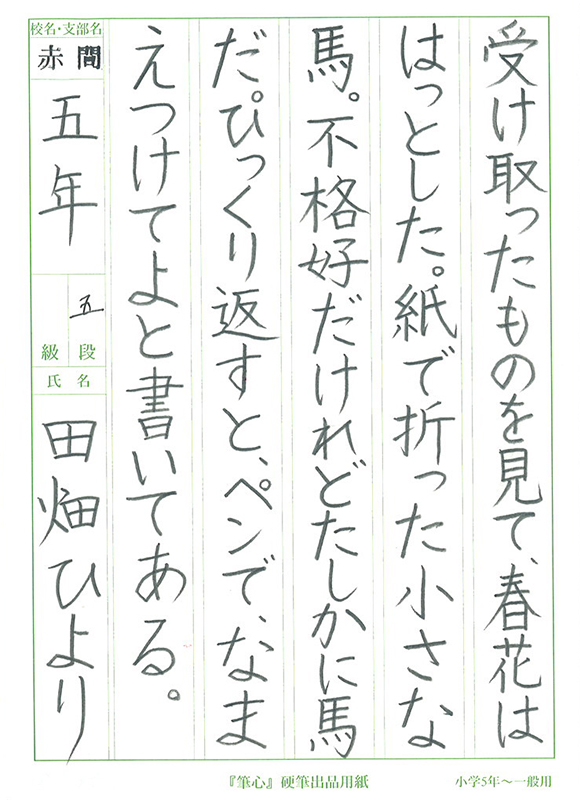 受け取ったものを見て、春花は
はっとした。紙で折った小さな
馬。不格好だけれどたしかに馬
だ。ひっくり返すと、ペンで、なま
えつけてよと書いてある。
校名・支部名
赤間
五年
五
段
級
氏名
田畑ひより
『筆心』硬筆出品用紙
小学5年～一般用